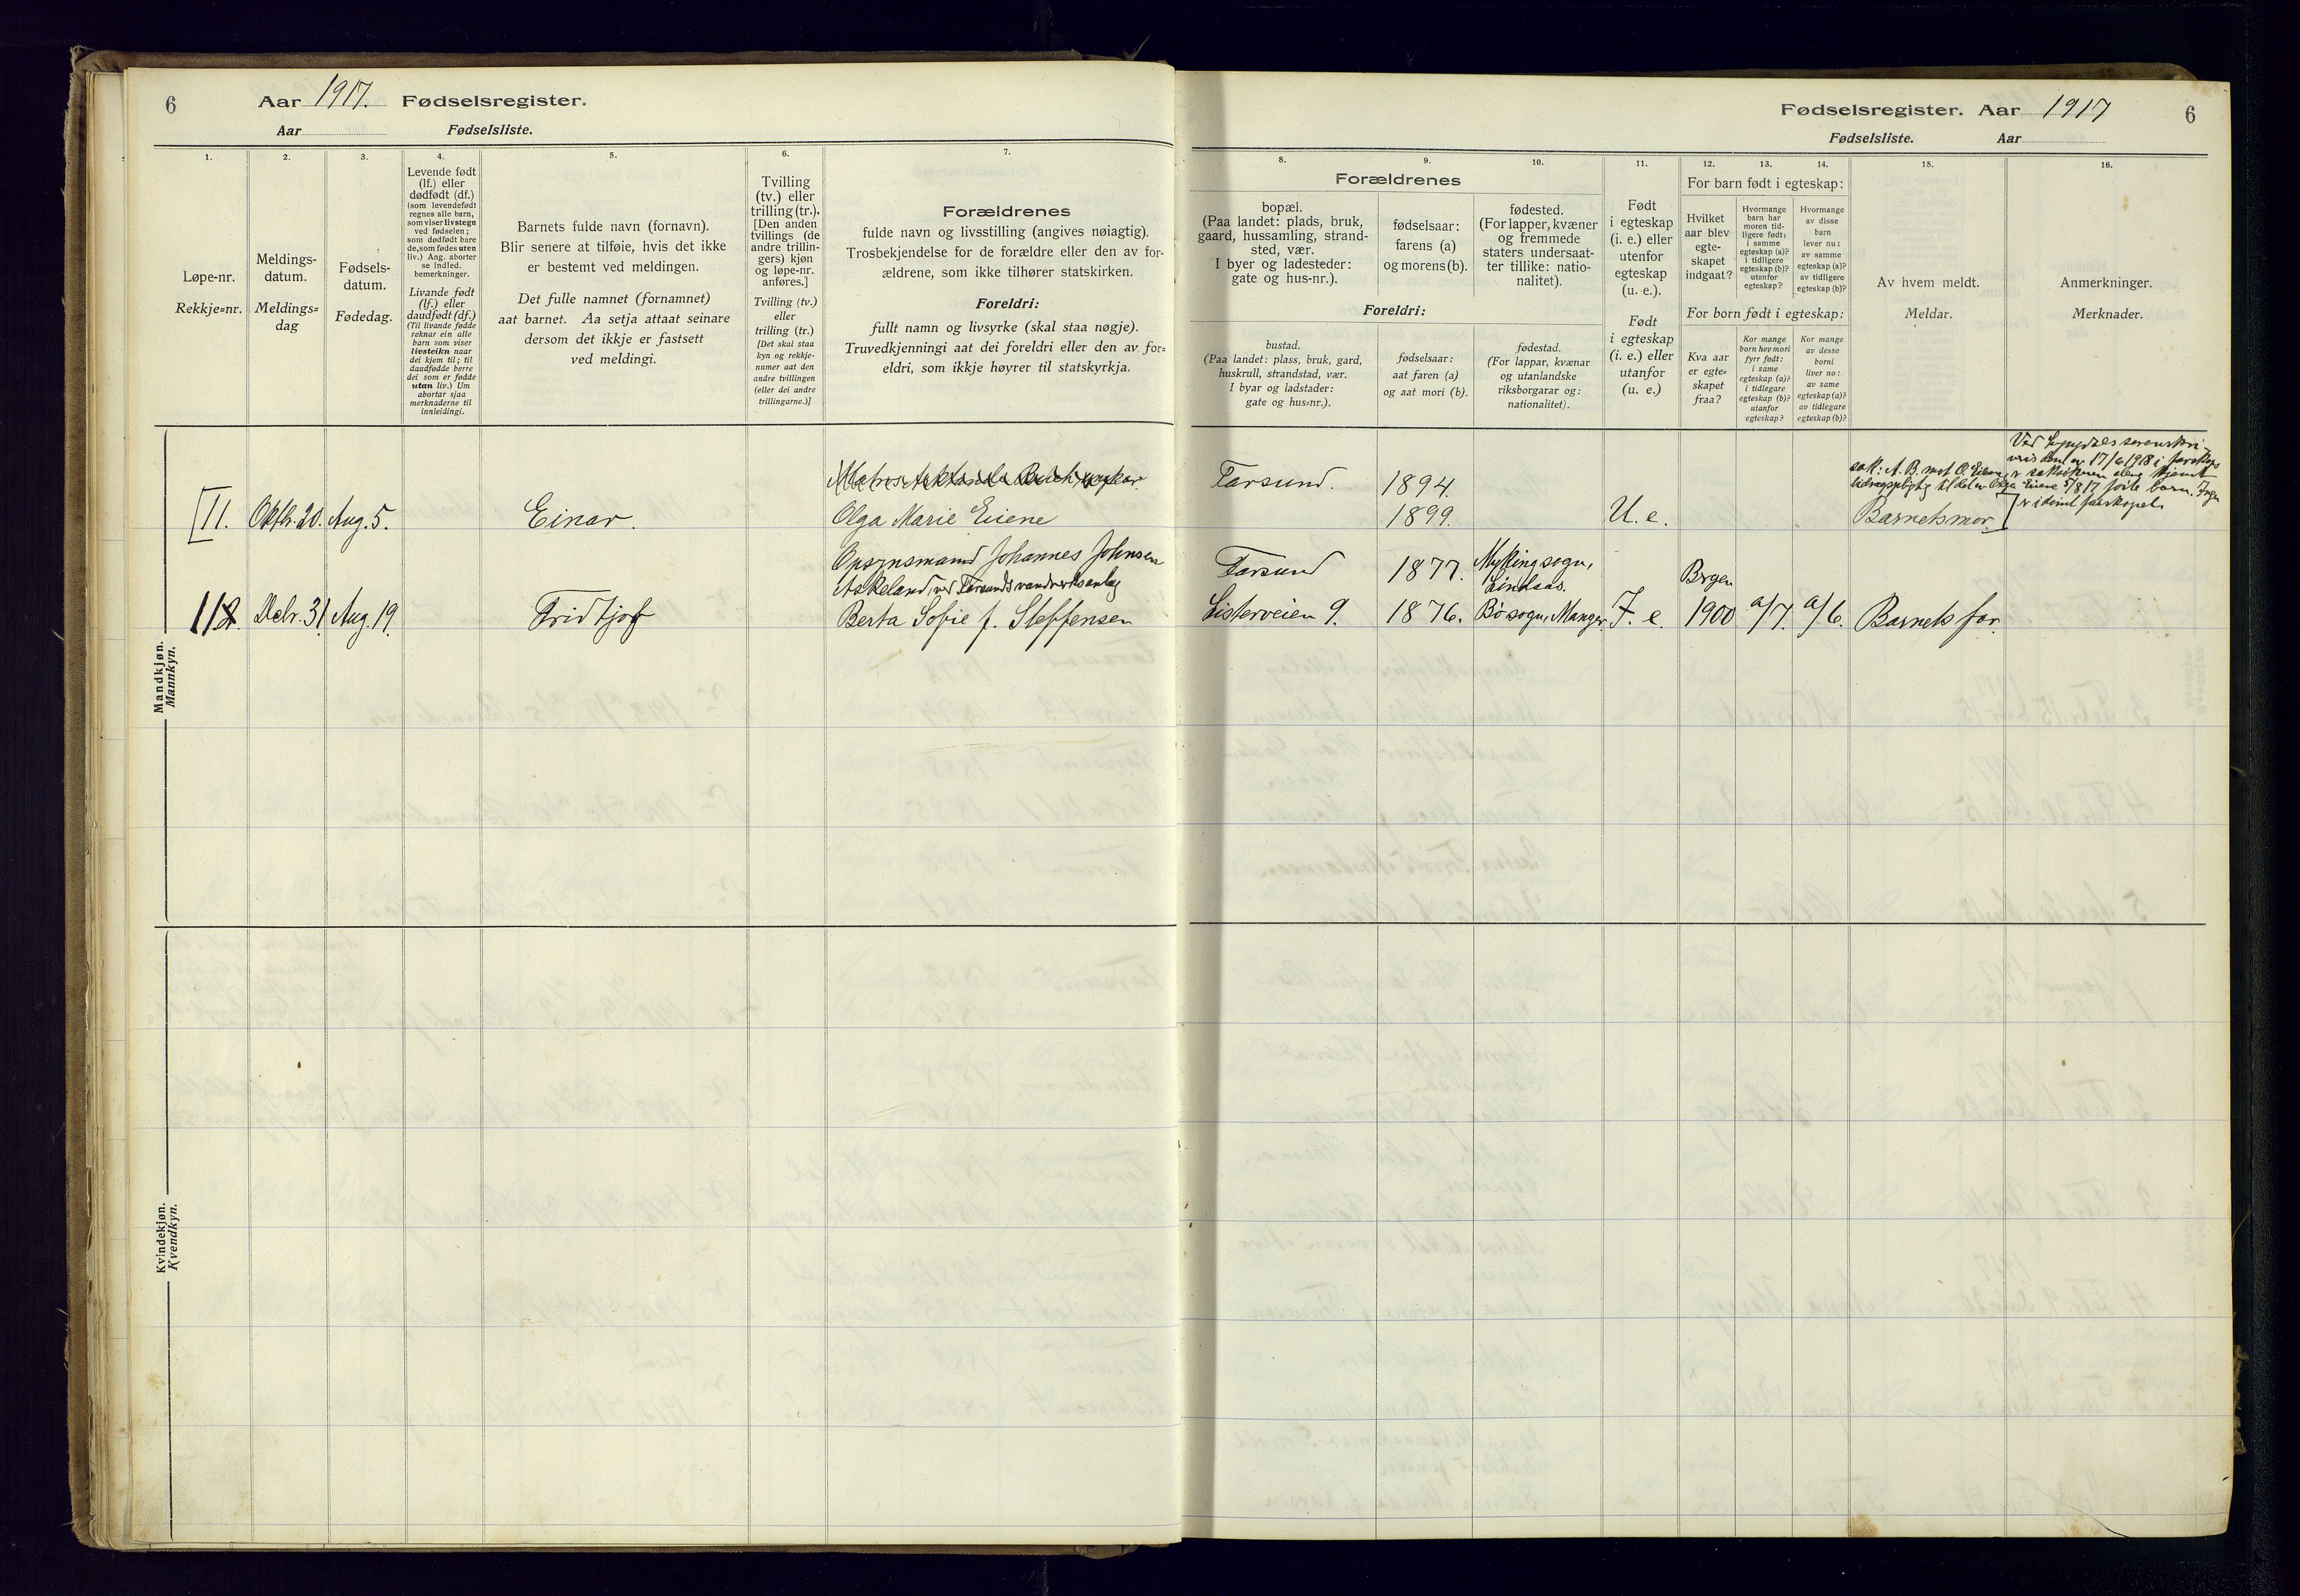 6 Aar 1917. Fødselsregister.
Aar Fødselsliste.
1. 2. 3. 4. 5. 6. 7.
Løpe-nr.
Rekkje=nr.
Meldings-
datum.
Meldings=
dag
Fødsels-
datum.
Fødedag.
Levende født
(lf.) eller
dødfødt (df.)
(som levendefødt
regnes alle barn,
som viser livstegn
ved fødselen;
som dødfødt bare
de, som fødes uten
liv.) Ang. aborter
se indled.
bemerkninger.
Livande født
(lf.) eller
daudfødt (df.)
(Til livande fødde
reknar ein alle
barn som viser
livsteikn naar
dei kjem til; til
daudfødde berre
dei som er fødde
utan liv.) Um
abortar sjaa
merknaderne til
innleidingi.
Barnets fulde navn (fornavn).
Blir senere at tilføie, hvis det ikke
er bestemt ved meldingen.
Det fulle namnet (fornamnet)
aat barnet. Aa setja attaat seinare
dersom det ikkje er fastsett
ved meldingi.
Tvilling
(tv.) eller
trilling (tr.).
[Den anden
tvillings (de
andre trillin-
gers) kjøn
og løpe-nr.
anføres.]
Tvilling (tv.)
eller
trilling (tr.)
[Det skal staa
kyn og rekkje-
numer aat den
andre tvillingen
(eller dei andre
trillingarne.)]
Forældrenes
fulde navn og livsstilling (angives nøiagtig).
Trosbekjendelse for de forældre eller den av for-
ældrene, som ikke tilhører statskirken.
Foreldri:
fullt namn og livsyrke (skal staa nøgje).
Truvedkjenningi aat dei foreldri eller den av for=
eldri, som ikkje høyrer til statskyrkja.
Mandkjøn.
Mannkyn.
11. Oktbr. 20. Aug. 5. Einar.
Olga Marie Eiene
112. Debr. 31. Aug. 19. Fridtjof
Opsynsmand Johannes Johnsen
Askeland, ved Farsunds vandverksanlæg
Berta Sofie f. Steffensen
Kvindekjøn.
Kvendkyn.
Fødselsregister. Aar 1917 6
Fødselsliste. Aar
8. 9. 10. 11. 12. 13. 14. 15. 16.
Forældrenes
bopæl.
(Paa landet: plads, bruk,
gaard, hussamling, strand-
sted, vær.
I byer og ladesteder:
gate og hus-nr.).
fødselsaar:
farens (a)
og morens (b).
fødested.
(For lapper, kvæner
og fremmede
staters undersaat-
ter tillike: natio-
nalitet).
Foreldri:
bustad.
(Paa landet: plass, bruk, gard,
huskrull, strandstad, vær.
I byar og ladstader:
gate og hus=nr.).
fødselsaar:
aat faren (a)
og aat mori (b).
fødestad.
(For lappar, kvænar
og utanlandske
riksborgarar og:
nationalitet).
Født
i egteskap
(i. e.) eller
utenfor
egteskap
(u. e.).
Født
i egteskap
(i. e.) eller
utanfor
(u. e.)
For barn født i egteskap:
Hvilket
aar blev
egte-
skapet
indgaat?
Hvormange
barn har
moren tid-
ligere født:
i samme
egteskap (a)?
i tidligere
egteskap (b)?
utenfor
egteskap?
Hvormange
av disse
barn
lever nu:
av samme
egteskap (a)?
av tidligere
egteskap (b)?
For born født i egteskap:
Kva aar
er egte=
skapet
fraa?
Kor mange
born hev mori
fyrr født:
i same
egteskap (a)?
i tidlegare
egteskap (b)?
utanfor
egteskap?
Kor mange
av desse
borni
liver no:
av same
egteskap (a)?
av tidlegare
egteskap (b)?
Av hvem meldt.
Meldar.
Anmerkninger.
Merknader.
Farsund. 1894.
1899. U. e. Barnets mor.
Farsund 1877. Mykingsogn,
Lindaas.
Listerveien 9. 1876. Bø sogn, Manger. I. e. 1900 a/7. a/6. Barnets far.